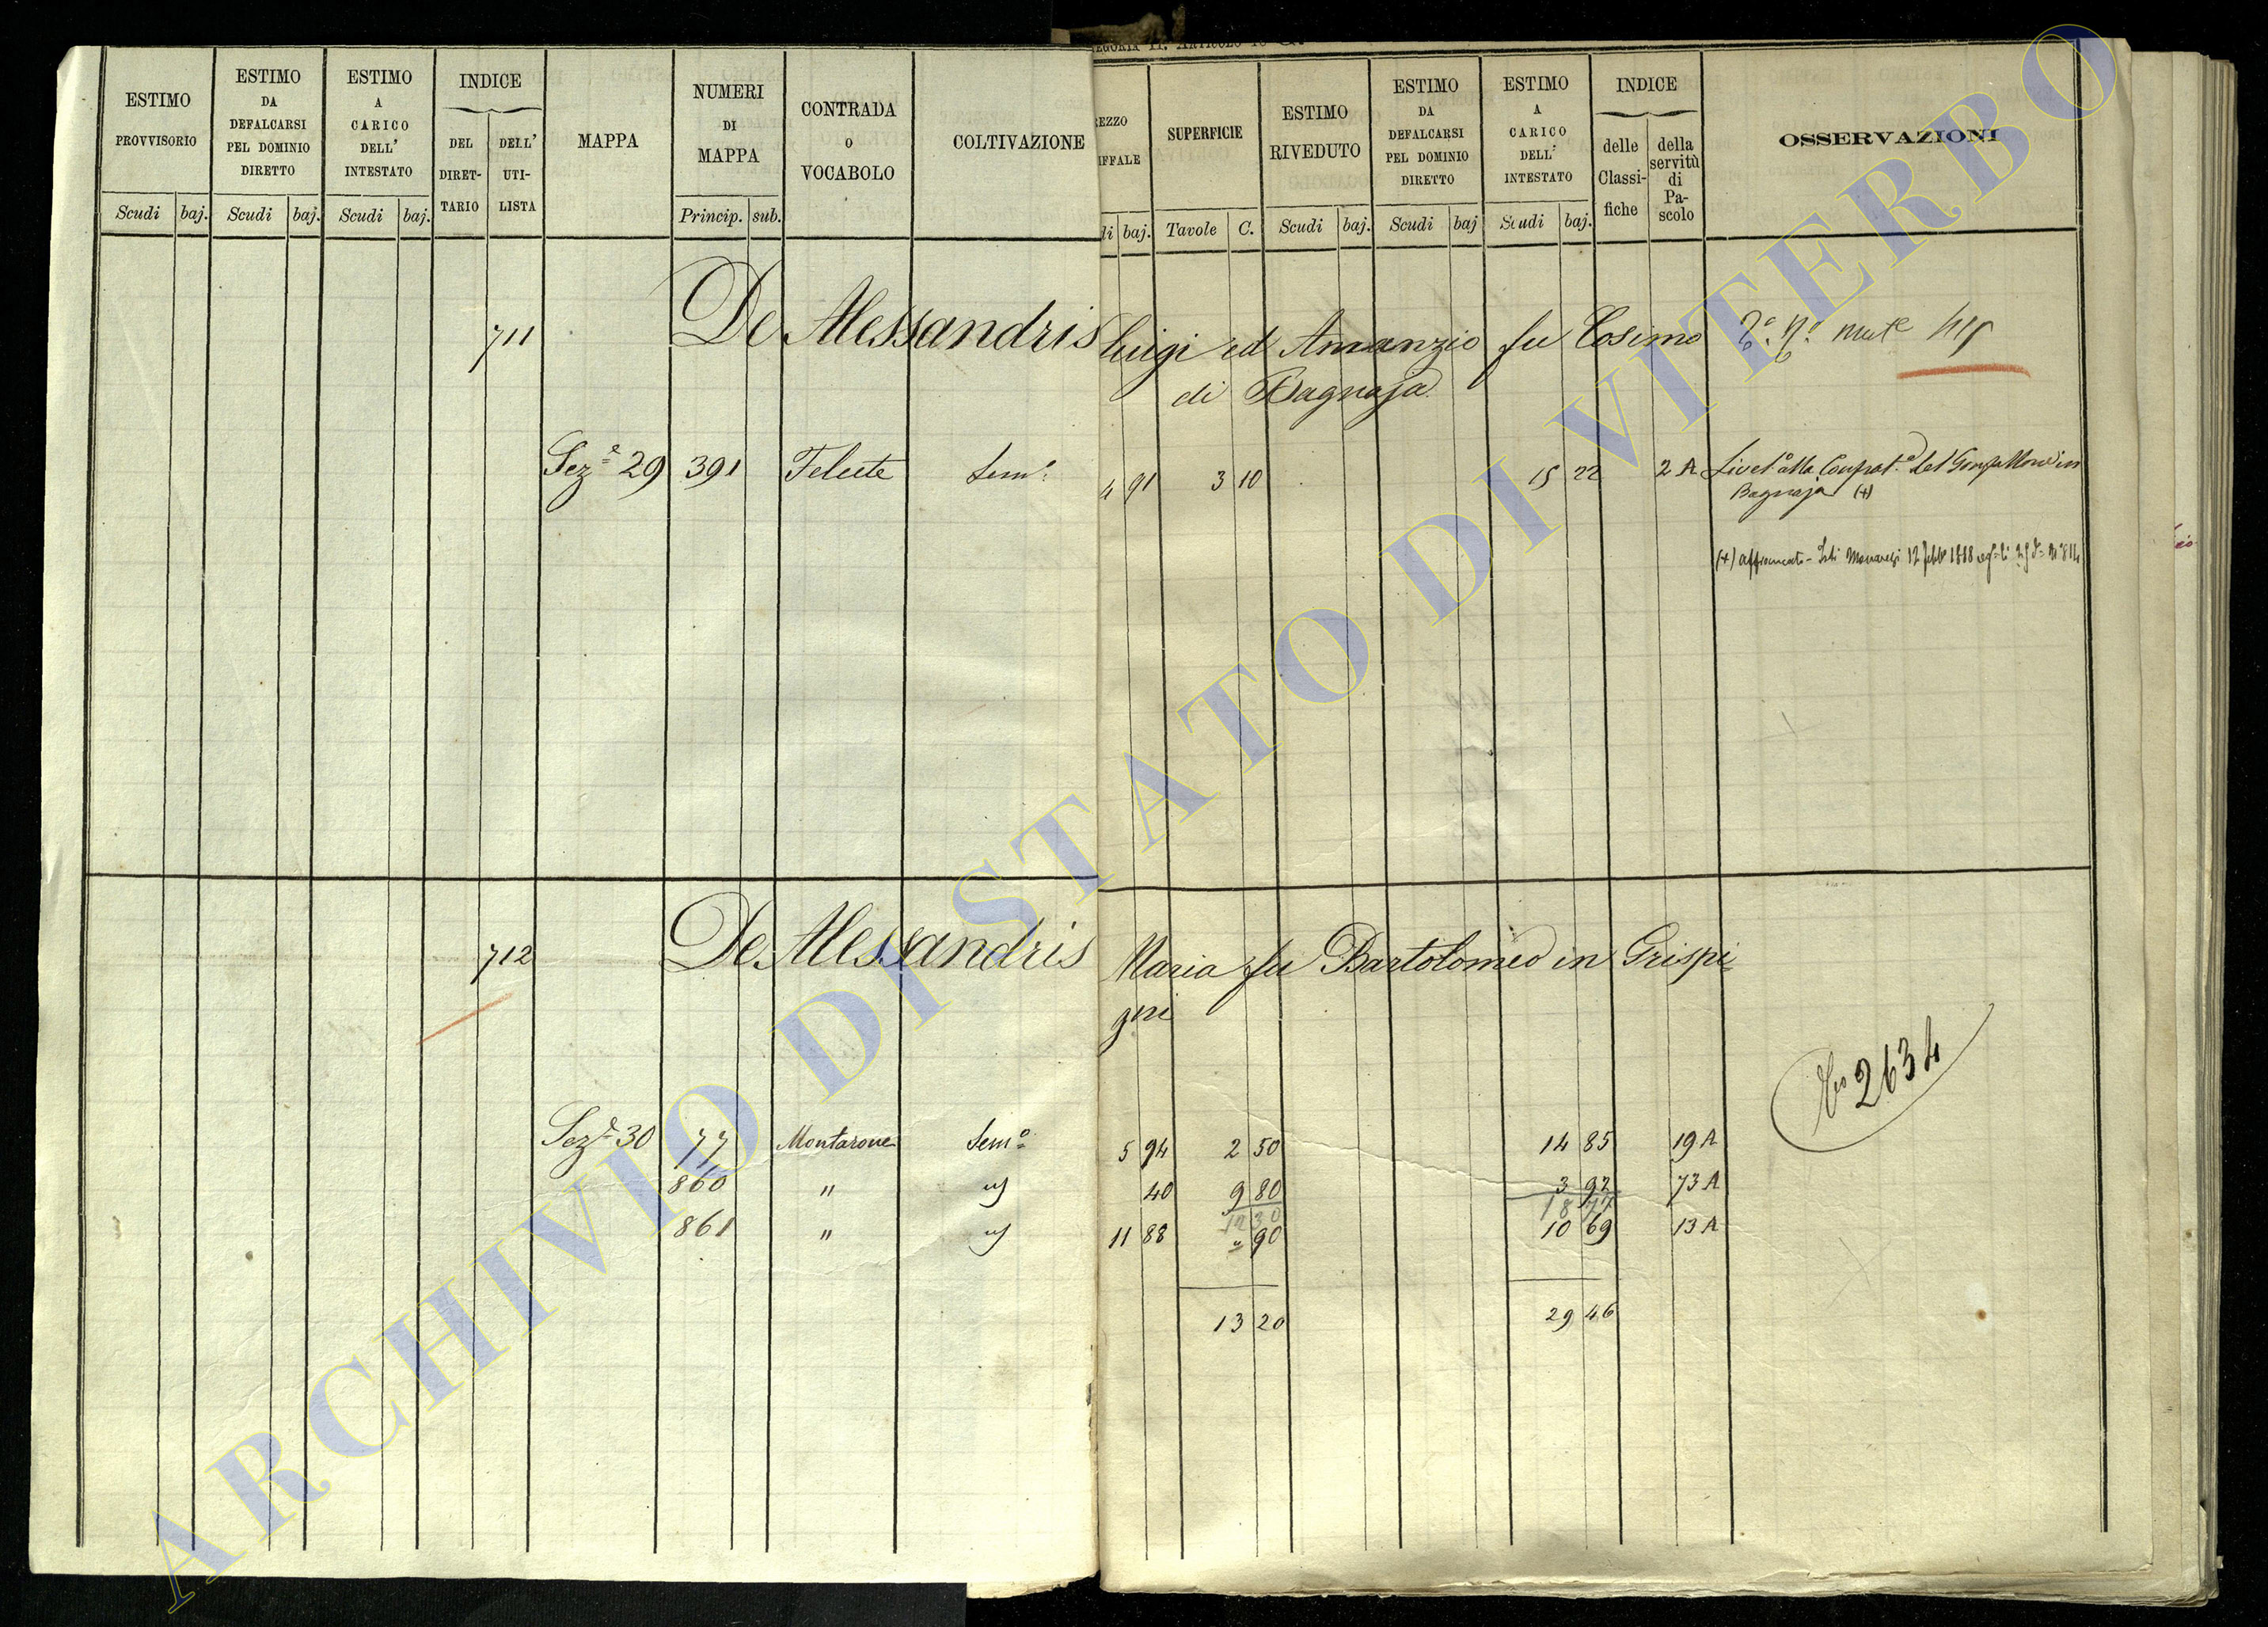 CATEGORIA II. ARTICOLO 10
ESTIMO PROVVISORIO
ESTIMO DA DEFALCARSI PEL DOMINIO DIRETTO
ESTIMO A CARICO DELL' INTESTATO
INDICE
DEL DIRET-TARIO
DELL' UTI-LISTA
MAPPA
NUMERI DI MAPPA
CONTRADA O VOCABOLO
COLTIVAZIONE
Scudi baj. Scudi baj. Scudi baj. Princip. sub.
REZZO IFFALE
SUPERFICIE
ESTIMO RIVEDUTO
ESTIMO DA DEFALCARSI PEL DOMINIO DIRETTO
ESTIMO A CARICO DELL' INTESTATO
INDICE
delle Classi-fiche
della servitù di Pa-scolo
OSSERVAZIONI
di baj. Tavole C. Scudi baj. Scudi baj Scudi baj.
711 De Alessandris Luigi ed Amanzio fu Cosimo
di Bagnaja
Sez.e 29 391 Telute Sem.o 4 91 3 10 15 22 2 A Livel.o alla Compat.a del Gonfallone in
Bagnaja (+)
(+) affrancato
712 De Alessandris Maria fu Bartolomeo in Grispi=
gni
No 2634
Sez.e 30 77 Montarone Sem.o 5 94 2 50 14 85 19 A
860 " " 40 9 80 3 92 73 A
12 30 18 77
861 " " 11 88 " 90 10 69 13 A
13 20 29 46
ARCHIVIO DI STATO DI VITERBO